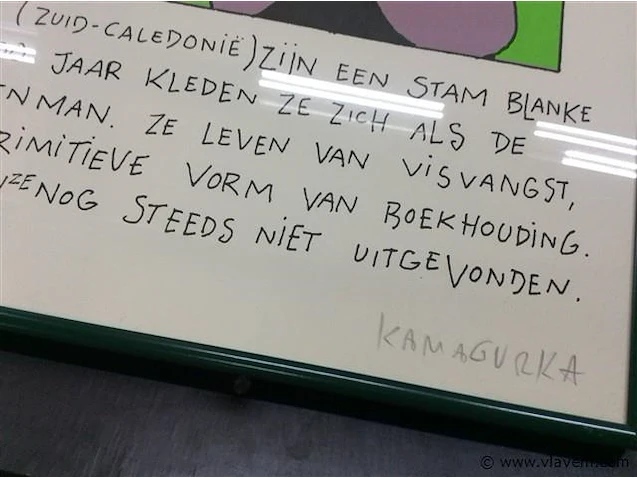 (ZUID-CALEDONIË) ZIJN EEN STAM BLANKE
JAAR KLEDEN ZE ZICH ALS DE
NMAN. ZE LEVEN VAN VISVANGST,
RIMITIEVE VORM VAN BOEKHOUDING.
ZE NOG STEEDS NIET UITGEVONDEN.
KAMAGURKA
© www.vlavem.com